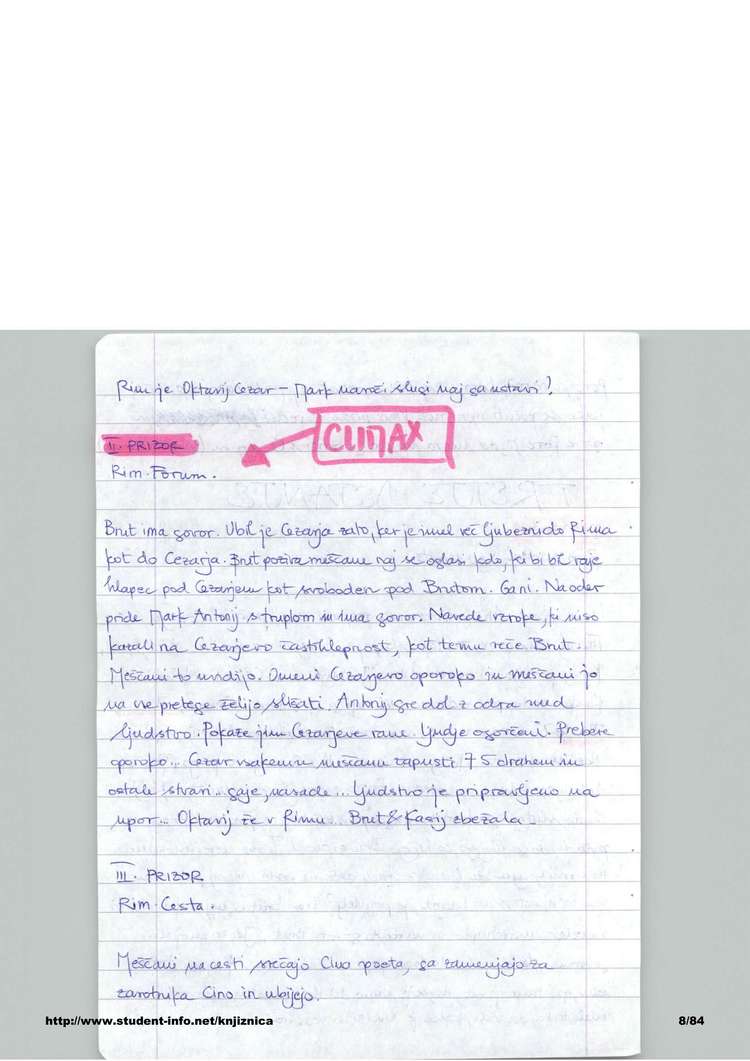 Rim je Oktavij Cezar – Mark naroči slugi naj ga ustavi!
CLIMAX
II. PRIZOR
Rim. Forum.
Brut ima govor. Ubil je Cezarja zato, ker je imel več ljubezni do Rima
kot do Cezarja. Brut poziva meščane naj se oglasi kdo, ki bi bil raje
hlapec pod Cezarjem kot svoboden pod Brutom. Gani. Na oder
pride Mark Antonij s truplom in ima govor. Navede vzroke, ki niso
kazali na Cezarjevo častihlepnost, kot temu reče Brut.
Meščani to uvidijo. Omeni Cezarjevo oporoko in meščani jo
na vse pretege želijo slišati. Antonij gre dol z odra med
ljudstvo. Pokaže jim Cezarjeve rane. Ljudje ogorčeni. Prebere
oporoko... Cezar vsakemu meščanu zapusti 75 drahem in
ostale stvari.. gaje, nasade... Ljudstvo je pripravljeno na
upor... Oktavij že v Rimu... Brut & Kasij zbežala.
III. PRIZOR
Rim. Cesta.
Meščani na cesti srečajo Cino poeta, ga zamenjajo za
zarotnika Cino in ubijejo.
http://www.student-info.net/knjiznica
8/84